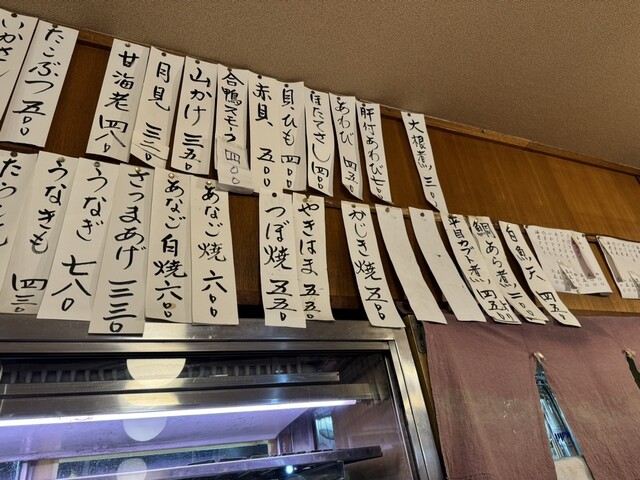 いかさし
たこぶつ 五〇〇
甘海老 四八〇
月見 三三〇
山かけ 三五〇
合鴨スモーク 四〇〇
赤貝 五〇〇
貝ひも 四〇〇
ほたてさし 四〇〇
あわび 四五〇
肝付あわび
大根煮 三〇〇
うなきも 四三〇
うなぎ 七八〇
さつまあげ 三三〇
あなご白焼 六〇〇
あなご焼 六〇〇
つぼ焼 五五〇
やきはま 五五〇
かじき焼 五五〇
平貝カブト煮
鯛あら煮 四五〇
白魚天 四五〇